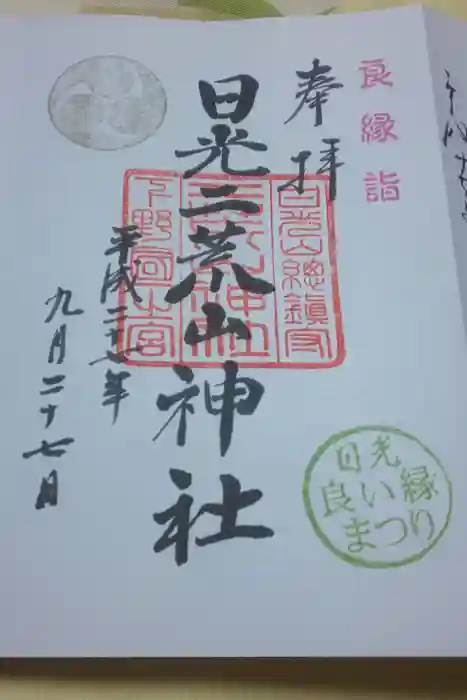 良縁詣
奉拝
日光二荒山神社
平成二十七年
九月二十七日
日光山總鎮守
二荒山神社
下野國一宮
日光
良い縁
まつり